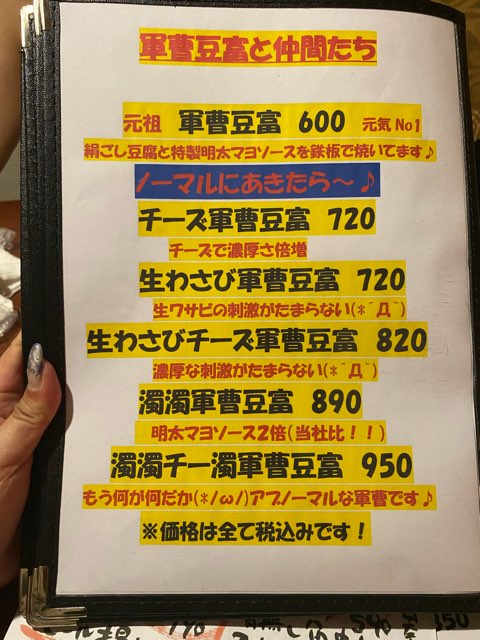 軍曹豆富と仲間たち
元祖 軍曹豆富 600 元気No1
絹ごし豆腐と特製明太マヨソースを鉄板で焼いてます♪
ノーマルにあきたら～♪
チーズ軍曹豆富 720
チーズで濃厚さ倍増
生わさび軍曹豆富 720
生ワサビの刺激がたまらない(*´Д`)
生わさびチーズ軍曹豆富 820
濃厚な刺激がたまらない(*´Д`)
濁濁軍曹豆富 890
明太マヨソース2倍(当社比！！)
濁濁チー濁軍曹豆富 950
もう何が何だか(*/ω/)アブノーマルな軍曹です♪
※価格は全て税込みです！